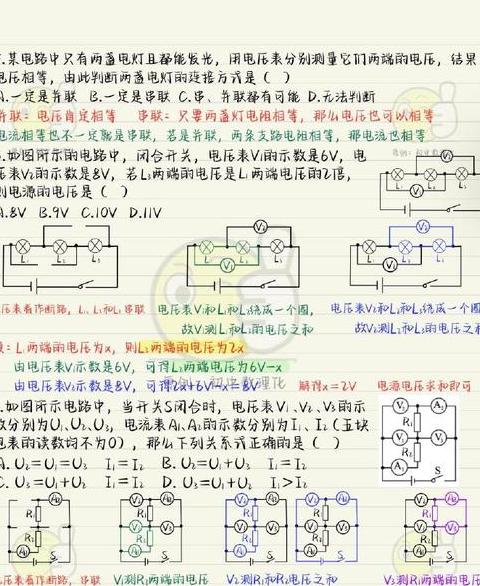 .某电路中只有两盏电灯且都能发光，用电压表分别测量它们两端的电压，结果
电压相等，由此判断两盏电灯的连接方式是（ ）
A.一定是并联 B.一定是串联 C.串、并联都有可能 D.无法判断
并联：电压肯定相等 串联：只要两盏灯电阻相等，那么电压也可以相等
电流相等也不一定就是串联，若是并联，两条支路电阻相等，那电流也相等
.如图所示的电路中，闭合开关，电压表V₁的示数是6V，电
压表V₂的示数是8V，若L₃两端的电压是L₁两端电压的2倍，
则电源的电压是（ ）
A.8V B.9V C.10V D.11V
V₂
L₁ L₂ L₃
V₁
L₁ L₂ L₃
V₂
L₁ L₂ L₃
V₁
V₂
L₁ L₂ L₃
V₁
压表看作断路，L₁、L₂和L₃串联 电压表V₁和L₁和L₂绕成一个圈， 电压表V₂和L₂和L₃绕成一个圈，
故V₁测L₁和L₂的电压之和 故V₂测L₂和L₃的电压之和
：L₁两端的电压为x，则L₃两端的电压为2x
由电压表V₁示数是6V，可得L₂两端电压为6V-x
由电压表V₂示数是8V，可得2x+6V-x=8V 解得x=2V 电源电压求和即可
.如图所示电路中，当开关S闭合时，电压表V₁、V₂、V₃的示
数分别为U₁、U₂、U₃，电流表A₁、A₂的示数分别为I₁、I₂（五块
电表的读数均不为0），那么下列关系式正确的是（ ）
A. U₂=U₁=U₃ I₁=I₂ B. U₂=U₁+U₃ I₁=I₂
C. U₃=U₁+U₂ I₁=I₂ D. U₃=U₁+U₂ I₁>I₂
R₁
R₂
S
压表看作断路，串联 V₁测R₂两端的电压 V₂测R₁和R₂电压之和